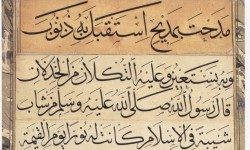 بمديح استقيل به ذنوب
وبه نستعين وعليه التكلان من الخذلان
قال رسول الله صلى الله عليه وسلم من شاب
شيبة في الاسلام كانت له نورا يوم القيمة